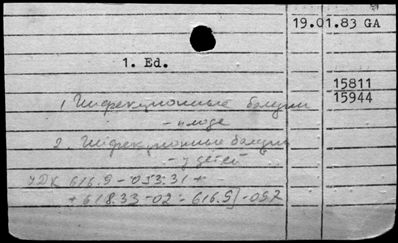 19.01.83 GA
1. Ed.
15811
15944
1 Инфекционные болезни
- плода
2. Инфекционные болезни
- у детей
УДК 616.9-053.31+
+618.33-02:616.9]-097